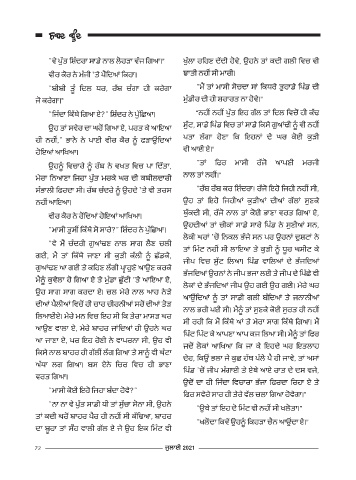 "ਵੇ ਪੁੱਤ ਸ਼ਿੰਦਰਾ ਸਾਡੇ ਨਾਲ ਲੋਹੜਾ ਵੱਜ ਗਿਆ।"
ਵੀਰ ਕੌਰ ਨੇ ਮੰਜੀ 'ਤੇ ਪੈਂਦਿਆਂ ਕਿਹਾ।
"ਬੀਬੀ ਤੂੰ ਦਿਲ ਧਰ, ਰੱਬ ਚੰਗਾ ਹੀ ਕਰੇਗਾ
ਜੋ ਕਰੇਗਾ।"
"ਜਿੰਦਾ ਕਿੱਥੇ ਗਿਆ ਏ?" ਸ਼ਿੰਦਰ ਨੇ ਪੁੱਛਿਆ।
ਉਹ ਤਾਂ ਸਵੇਰ ਦਾ ਘਰੋਂ ਗਿਆ ਏ, ਪਰਤ ਕੇ ਆਇਆ
ਹੀ ਨਹੀਂ," ਭਾਨੇ ਨੇ ਪਾਣੀ ਵੀਰ ਕੌਰ ਨੂੰ ਫੜਾਉਂਦਿਆਂ
ਹੋਇਆਂ ਆਖਿਆ।
ਉਹਨੂੰ ਵਿਚਾਰੇ ਨੂੰ ਰੱਬ ਨੇ ਵਖਤ ਵਿਚ ਪਾ ਦਿੱਤਾ,
ਮੇਰਾ ਨਿਆਣਾ ਜਿਹਾ ਪੁੱਤ ਮਰਕੇ ਘਰ ਦੀ ਕਬੀਲਦਾਰੀ
ਸੰਭਾਲੀ ਫਿਰਦਾ ਸੀ। ਰੱਬ ਚੰਦਰੇ ਨੂੰ ਉਹਦੇ 'ਤੇ ਵੀ ਤਰਸ
ਨਹੀਂ ਆਇਆ।
ਵੀਰ ਕੌਰ ਨੇ ਰੋਂਦਿਆਂ ਹੋਇਆਂ ਆਖਿਆ।
"ਮਾਸੀ ਤੁਸੀਂ ਕਿੱਥੇ ਸੋ ਸਾਰੇ?" ਸ਼ਿੰਦਰ ਨੇ ਪੁੱਛਿਆ।
"ਵੇ ਮੈਂ ਚੰਦਰੀ ਗੁਆਂਢਣ ਨਾਲ ਸਾਗ ਲੈਣ ਚਲੀ
ਗਈ, ਮੈਂ ਤਾਂ ਕਿੱਥੇ ਜਾਣਾ ਸੀ ਕੁੜੀ ਕੱਲੀ ਨੂੰ ਛੱਡਕੇ,
ਗੁਆਂਢਣ ਆ ਗਈ ਤੇ ਕਹਿਣ ਲੱਗੀ ਪ੍ਰਾਹੁਣੇ ਆਉਣ ਕਰਕੇ
ਮੈਨੂੰ ਭੁਲੇਖਾ ਹੋ ਗਿਆ ਏ ਤੇ ਮੁੰਡਾ ਛੁੱਟੀ 'ਤੇ ਆਇਆ ਏ,
ਉਹ ਸਾਗ ਸਾਗ ਕਰਦਾ ਏ। ਚਲ ਮੇਰੇ ਨਾਲ ਆਹ ਨੇੜੇ
ਦੀਆਂ ਪੈਲੀਆਂ ਵਿਚੋਂ ਹੀ ਚਾਰ ਗੰਦਲਾਂ ਸਰੋਂ ਦੀਆਂ ਤੋੜ
ਲਿਆਈਏ। ਮੇਰੇ ਮਨ ਵਿਚ ਇਹ ਸੀ ਕਿ ਤੇਰਾ ਮਾਸੜ ਘਰ
ਆਉਣ ਵਾਲਾ ਏ, ਮੇਰੇ ਬਾਹਰ ਜਾਂਦਿਆਂ ਹੀ ਉਹਨੇ ਘਰ
ਆ ਜਾਣਾ ਏ, ਪਰ ਇਹ ਹੋਣੀ ਨੇ ਵਾਪਰਨਾ ਸੀ, ਉਹ ਵੀ
ਕਿਸੇ ਨਾਲ ਬਾਹਰ ਹੀ ਗੱਲੀਂ ਲੱਗ ਗਿਆ ਤੇ ਸਾਨੂੰ ਵੀ ਘੰਟਾ
ਅੱਧਾ ਲਗ ਗਿਆ। ਬਸ ਏਨੇ ਚਿਰ ਵਿਚ ਹੀ ਭਾਣਾ
ਵਰਤ ਗਿਆ।
"ਮਾਸੀ ਕੋਈ ਇਹੋ ਜਿਹਾ ਬੰਦਾ ਹੋਵੇ?"
"ਨਾ ਨਾ ਵੇ ਪੁੱਤ ਸਾਡੀ ਧੀ ਤਾਂ ਸੁੱਚਾ ਸੋਨਾ ਸੀ, ਉਹਨੇ
ਤਾਂ ਕਦੀ ਘਰੋਂ ਬਾਹਰ ਪੈਰ ਹੀ ਨਹੀਂ ਸੀ ਕੱਢਿਆ, ਬਾਹਰ
ਦਾ ਬੂਹਾ ਤਾਂ ਸੌਂਹ ਵਾਲੀ ਗੱਲ ਏ ਜੇ ਉਹ ਇਕ ਮਿੰਟ ਵੀ
ਖੁੱਲਾ ਰਹਿਣ ਦੇਂਦੀ ਹੋਵੇ, ਉਹਨੇ ਤਾਂ ਕਦੀ ਗਲੀ ਵਿਚ ਵੀ
ਝਾਤੀ ਨਹੀਂ ਸੀ ਮਾਰੀ।
"ਮੈਂ ਤਾਂ ਮਾਸੀ ਸੋਚਦਾ ਸਾਂ ਕਿਧਰੇ ਤੁਹਾਡੇ ਪਿੰਡ ਦੀ
ਮੁੰਡੀਰ ਦੀ ਹੀ ਸ਼ਰਾਰਤ ਨਾ ਹੋਵੇ।"
"ਨਹੀਂ ਨਹੀਂ ਪੁੱਤ ਇਹ ਗੱਲ ਤਾਂ ਦਿਲ ਵਿਚੋਂ ਹੀ ਕੱਢ
ਸੁੱਟ, ਸਾਡੇ ਪਿੰਡ ਵਿਚ ਤਾਂ ਸਾਡੇ ਕਿਸੇ ਗੁਆਂਢੀ ਨੂੰ ਵੀ ਨਹੀਂ
ਪਤਾ ਲੱਗਾ ਹੋਣਾ ਕਿ ਇਹਨਾਂ ਦੇ ਘਰ ਕੋਈ ਕੁੜੀ
ਵੀ ਆਈ ਏ।"
"ਤਾਂ ਫਿਰ ਮਾਸੀ ਰੱਜੋ ਆਪਣੀ ਮਰਜ਼ੀ
ਨਾਲ ਤਾਂ ਨਹੀਂ?"
"ਰੱਬ ਰੱਬ ਕਰ ਇੰਦਰਾ! ਰੱਜੋ ਇਹੋ ਜਿਹੀ ਨਹੀਂ ਸੀ,
ਉਹ ਤਾਂ ਇਹੋ ਜਿਹੀਆਂ ਕੁੜੀਆਂ ਦੀਆਂ ਗੱਲਾਂ ਸੁਣਕੇ
ਥੁੱਕਦੀ ਸੀ, ਰੱਜੋ ਨਾਲ ਤਾਂ ਕੋਈ ਭਾਣਾ ਵਰਤ ਗਿਆ ਏ,
ਉਹਦੀਆਂ ਤਾਂ ਚੀਕਾਂ ਸਾਡੇ ਸਾਰੇ ਪਿੰਡ ਨੇ ਸੁਣੀਆਂ ਸਨ,
ਲੋਕੀਂ ਘਰਾਂ 'ਚੋਂ ਨਿਕਲ ਭੱਜੇ ਸਨ ਪਰ ਉਹਨਾਂ ਦੁਸ਼ਟਾਂ ਨੇ
ਤਾਂ ਮਿੰਟ ਨਹੀਂ ਸੀ ਲਾਇਆ ਤੇ ਕੁੜੀ ਨੂੰ ਧੂਹ ਘਸੀਟ ਕੇ
ਜੀਪ ਵਿਚ ਸੁੱਟ ਲਿਆ। ਪਿੰਡ ਵਾਲਿਆਂ ਦੇ ਭੱਜਦਿਆਂ
ਭੱਜਦਿਆਂ ਉਹਨਾਂ ਨੇ ਜੀਪ ਭਜਾ ਲਈ ਤੇ ਜੀਪ ਦੇ ਪਿੱਛੇ ਵੀ
ਲੋਕਾਂ ਦੇ ਭੱਜਦਿਆਂ ਜੀਪ ਉਹ ਗਈ ਉਹ ਗਈ। ਮੇਰੇ ਘਰ
ਆਉਂਦਿਆਂ ਨੂੰ ਤਾਂ ਸਾਡੀ ਗਲੀ ਬੰਦਿਆਂ ਤੇ ਜਨਾਨੀਆਂ
ਨਾਲ ਭਰੀ ਪਈ ਸੀ। ਮੈਨੂੰ ਤਾਂ ਸੁਣਕੇ ਕੋਈ ਸੁਰਤ ਹੀ ਨਹੀਂ
ਸੀ ਰਹੀ ਕਿ ਮੈਂ ਕਿੱਥੇ ਆਂ ਤੇ ਮੇਰਾ ਸਾਗ ਕਿੱਥੇ ਗਿਆ। ਮੈਂ
ਪਿੱਟ ਪਿੱਟ ਕੇ ਆਪਣਾ ਆਪ ਕਹ ਲਿਆ ਸੀ। ਮੈਨੂੰ ਤਾਂ ਫਿਰ
ਜਦੋਂ ਲੋਕਾਂ ਆਖਿਆ ਕਿ ਜਾ ਕੇ ਇਹਦੇ ਘਰ ਇਤਲਾਹ
ਦੇਹ, ਕਿਉਂ ਭਲਾ ਜੇ ਕੁਛ ਹੱਥ ਪੱਲੇ ਪੈ ਹੀ ਜਾਵੇ, ਤਾਂ ਅਸਾਂ
ਪਿੰਡ 'ਚੋਂ ਜੀਪ ਮੰਗਾਈ ਤੇ ਏਥੇ ਆਏ ਰਾਤ ਦੇ ਦਸ ਵਜੇ,
ਉਦੋਂ ਦਾ ਹੀ ਜਿੰਦਾ ਵਿਚਾਰਾ ਭੱਜਾ ਫਿਰਦਾ ਰਿਹਾ ਏ ਤੇ
ਫਿਰ ਸਵੇਰੇ ਸਾਰ ਹੀ ਤੇਰੇ ਵੱਲ ਚਲਾ ਗਿਆ ਹੋਵੇਗਾ।"
"ਉਥੇ ਤਾਂ ਇਹ ਦੋ ਮਿੰਟ ਵੀ ਨਹੀਂ ਸੀ ਖਲੋਤਾ।"
"ਖਲੋਂਦਾ ਕਿਵੇਂ ਉਹਨੂੰ ਕਿਹੜਾ ਚੈਨ ਆਉਂਦਾ ਏ।"
72
ਜੁਲਾਈ 2021